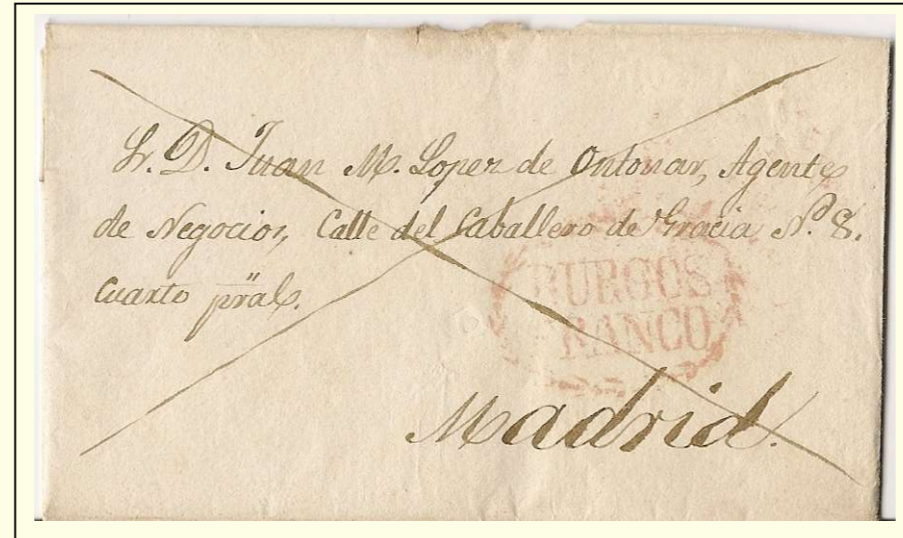 Sr. D. Juan M. Lopez de Ontonar, Agente
de Negocios, Calle del Caballero de Gracia Nº. 8.
Cuarto pral.
BURGOS
FRANCO
Madrid.